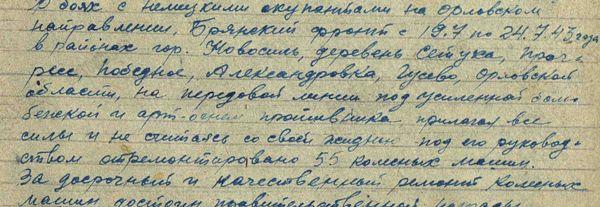 В боях с немецкими окупантами на Орловском
направлении, Брянский фронт с 19.7 по 24.7.43 года
в районах гор. Новосиль, деревень Сетуха, Прог-
ресс, Победное, Александровка, Гусево, Орловской
области, на передовой линии под усиленной бом-
бежкой и арт-огнем противника прилагал все
силы и не считаясь со своей жизнью под его руковод-
ством отремонтировано 55 колесных машин.
За досрочный и качественный ремонт колесных
машин достоин правительственной награды